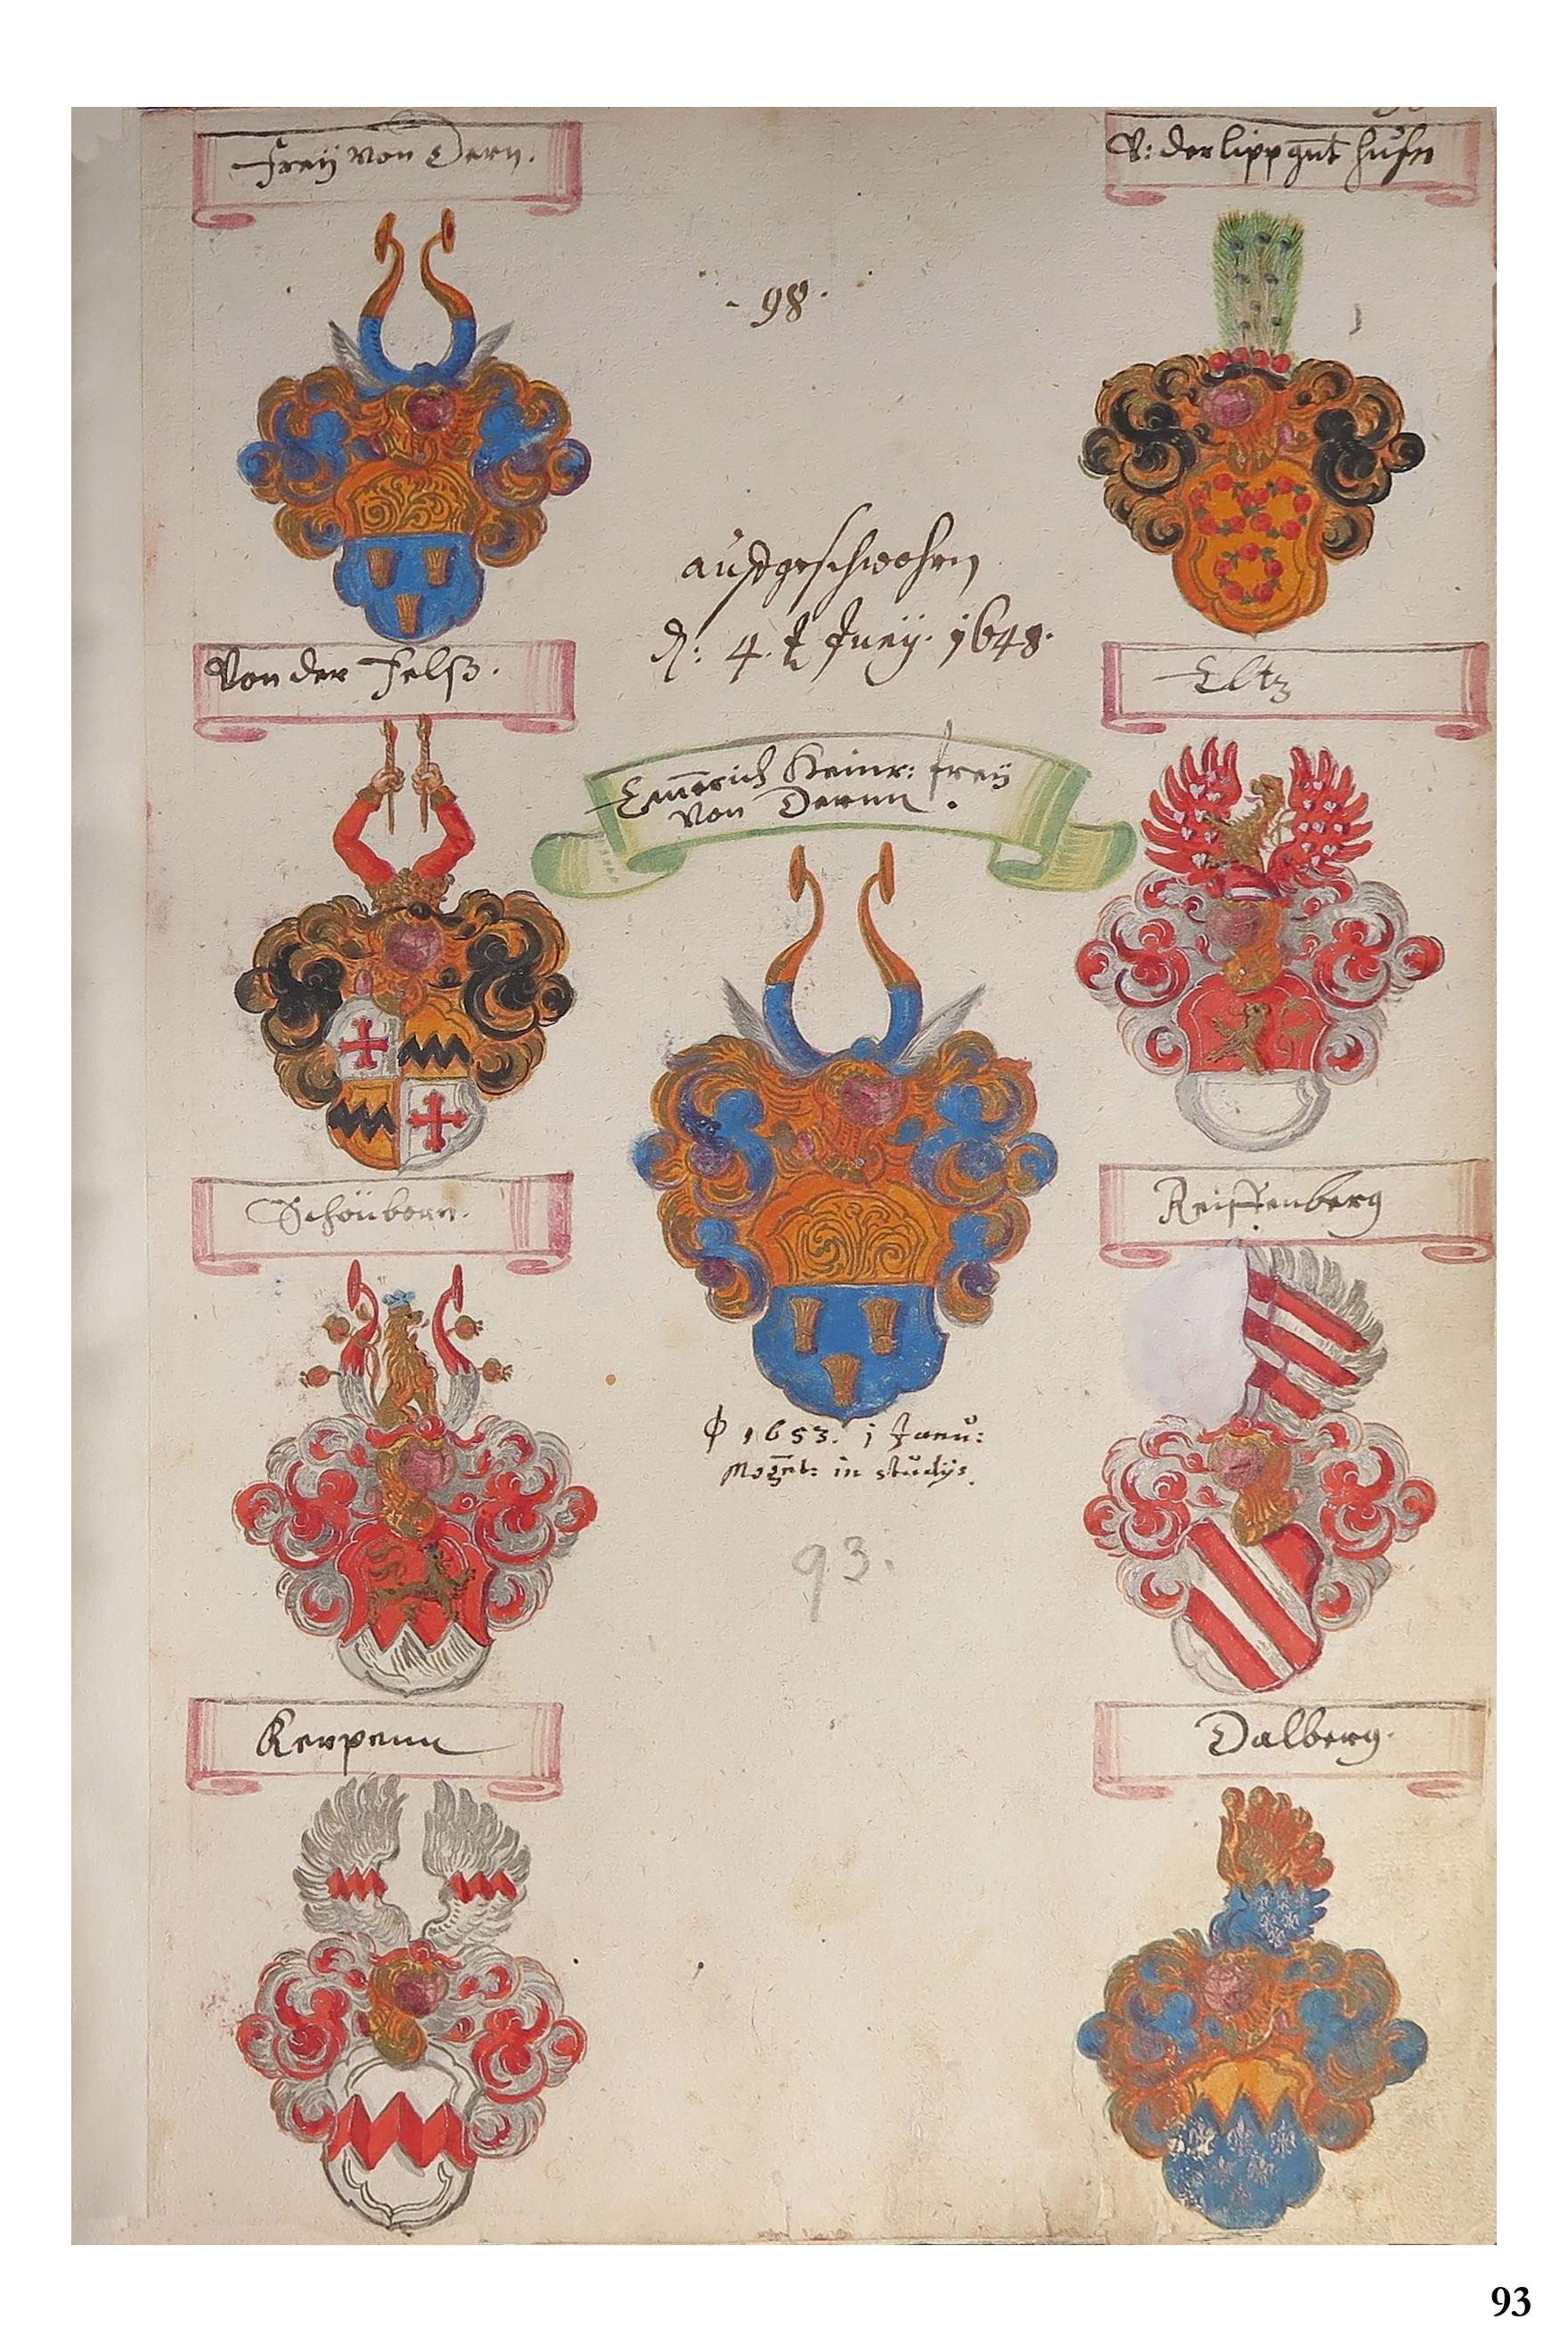 Freÿ von Dern.
V: der lipp gnt hůn
- 98 -
aufgeschwohren
d: 4. t Juny. 1648.
Von der Felß.
Eltz
Em̅erich Heinr: freÿ
von Dernn .
Schönborn.
Reiffenberg
1653. j Janu:
Mogt: in studijs.
93.
Kerpenn
Dalberg.
93